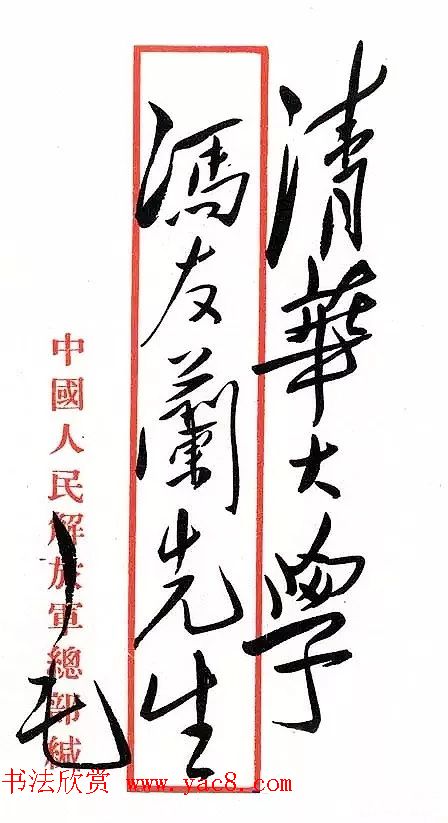 清華大學
馮友蘭先生
中國人民解放軍總部緘
毛
书法欣赏 www.yac8.com